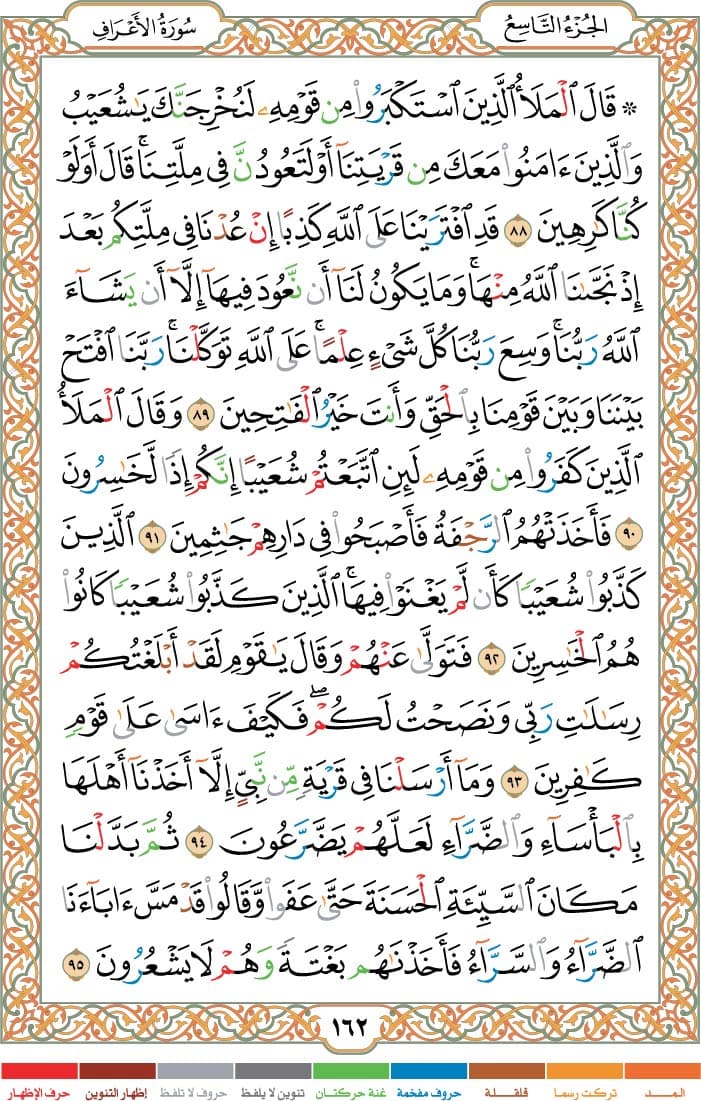 الجُزْءُ التَّاسِعُ
سُورَةُ الأَعْرَافِ
۞ قَالَ ٱلْمَلَأُ ٱلَّذِينَ ٱسْتَكْبَرُوا۟ مِن قَوْمِهِۦ لَنُخْرِجَنَّكَ يَـٰشُعَيْبُ
وَٱلَّذِينَ ءَامَنُوا۟ مَعَكَ مِن قَرْيَتِنَآ أَوْ لَتَعُودُنَّ فِى مِلَّتِنَا ۚ قَالَ أَوَلَوْ
كُنَّا كَـٰرِهِينَ ٨٨ قَدِ ٱفْتَرَيْنَا عَلَى ٱللَّهِ كَذِبًا إِنْ عُدْنَا فِى مِلَّتِكُم بَعْدَ
إِذْ نَجَّىٰنَا ٱللَّهُ مِنْهَا ۚ وَمَا يَكُونُ لَنَآ أَن نَّعُودَ فِيهَآ إِلَّآ أَن يَشَآءَ
ٱللَّهُ رَبُّنَا ۚ وَسِعَ رَبُّنَا كُلَّ شَىْءٍ عِلْمًا ۚ عَلَى ٱللَّهِ تَوَكَّلْنَا ۚ رَبَّنَا ٱفْتَحْ
بَيْنَنَا وَبَيْنَ قَوْمِنَا بِٱلْحَقِّ وَأَنتَ خَيْرُ ٱلْفَـٰتِحِينَ ٨٩ وَقَالَ ٱلْمَلَأُ
ٱلَّذِينَ كَفَرُوا۟ مِن قَوْمِهِۦ لَئِنِ ٱتَّبَعْتُمْ شُعَيْبًا إِنَّكُمْ إِذًا لَّخَـٰسِرُونَ
٩٠ فَأَخَذَتْهُمُ ٱلرَّجْفَةُ فَأَصْبَحُوا۟ فِى دَارِهِمْ جَـٰثِمِينَ ٩١ ٱلَّذِينَ
كَذَّبُوا۟ شُعَيْبًا كَأَن لَّمْ يَغْنَوْا۟ فِيهَا ۚ ٱلَّذِينَ كَذَّبُوا۟ شُعَيْبًا كَانُوا۟
هُمُ ٱلْخَـٰسِرِينَ ٩٢ فَتَوَلَّىٰ عَنْهُمْ وَقَالَ يَـٰقَوْمِ لَقَدْ أَبْلَغْتُكُمْ
رِسَـٰلَـٰتِ رَبِّى وَنَصَحْتُ لَكُمْ ۖ فَكَيْفَ ءَاسَىٰ عَلَىٰ قَوْمٍ
كَـٰفِرِينَ ٩٣ وَمَآ أَرْسَلْنَا فِى قَرْيَةٍ مِّن نَّبِىٍّ إِلَّآ أَخَذْنَآ أَهْلَهَا
بِٱلْبَأْسَآءِ وَٱلضَّرَّآءِ لَعَلَّهُمْ يَضَّرَّعُونَ ٩٤ ثُمَّ بَدَّلْنَا
مَكَانَ ٱلسَّيِّئَةِ ٱلْحَسَنَةَ حَتَّىٰ عَفَوا۟ وَّقَالُوا۟ قَدْ مَسَّ ءَابَآءَنَا
ٱلضَّرَّآءُ وَٱلسَّرَّآءُ فَأَخَذْنَـٰهُم بَغْتَةً وَهُمْ لَا يَشْعُرُونَ ٩٥
١٦٢
المـــد تركت رسما قلقـلـة حروف مفخمة غنة حركتـان تنوين لا يلفظ حروف لا تلفظ إظهار التنوين حرف الإظهار